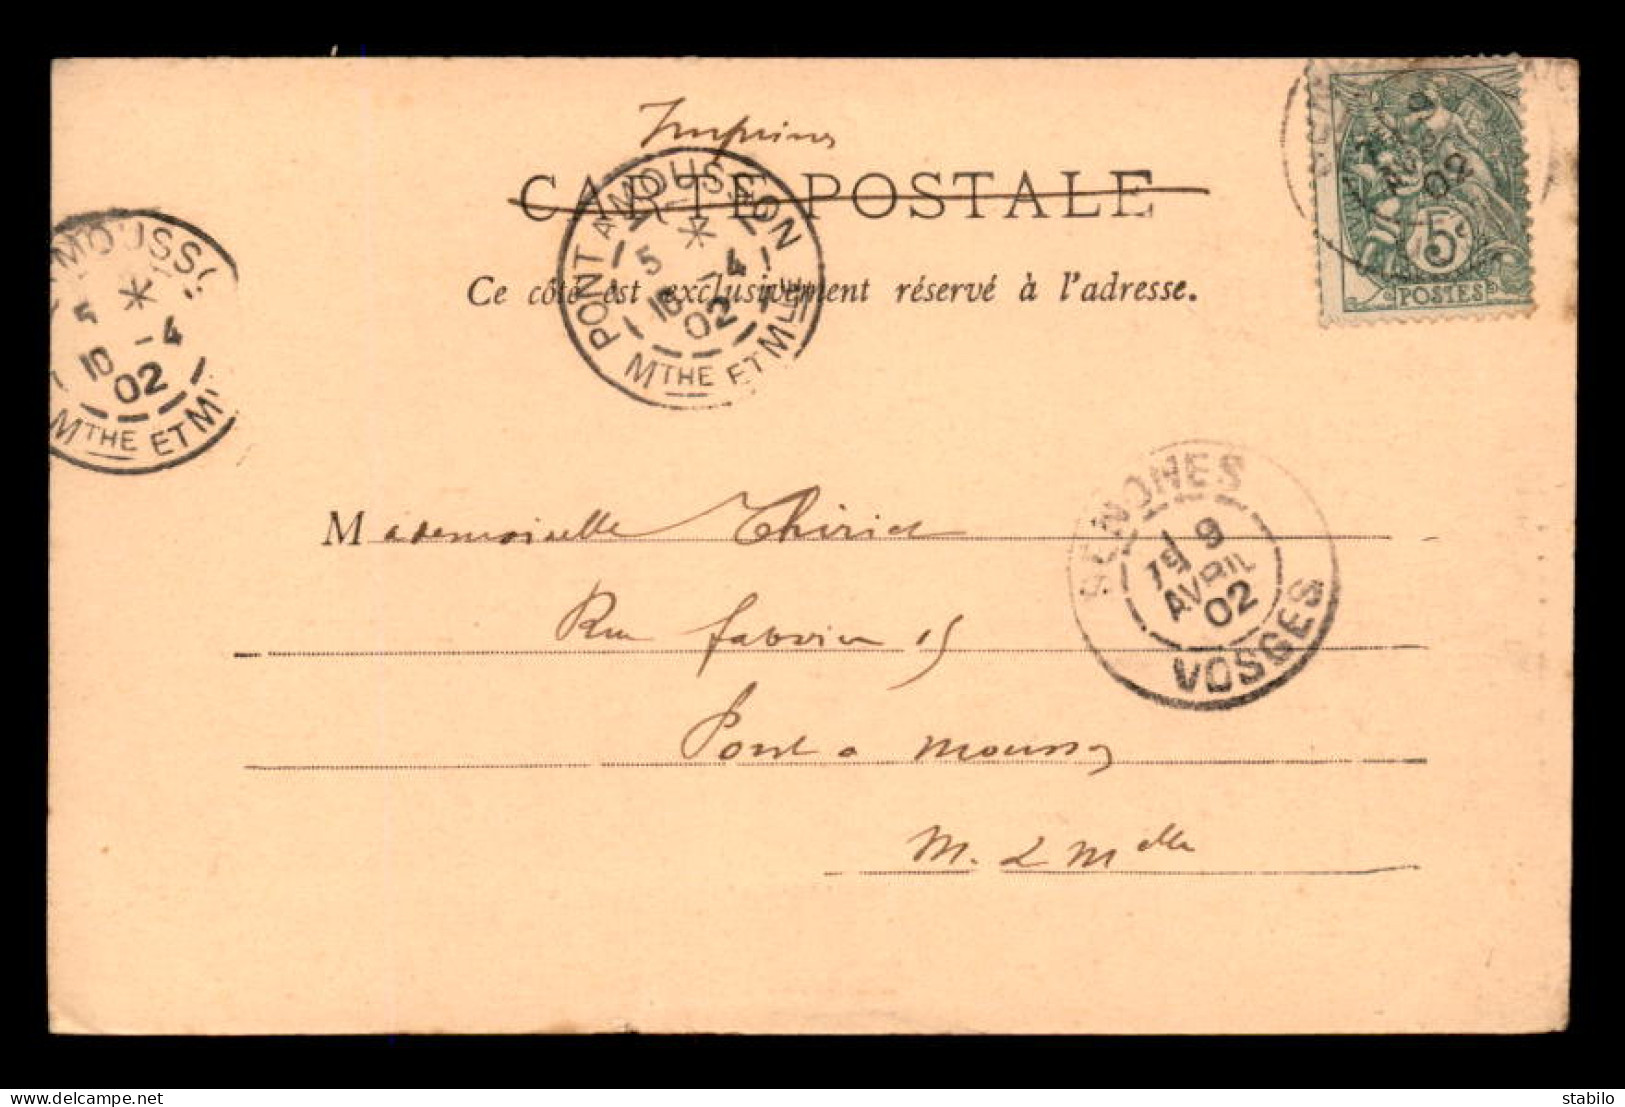 Imprimé
CARTE POSTALE
Ce côté est exclusivement réservé à l'adresse.
5c
POSTES
MOUSS
5 *
10 -4
02
MTHE ET M
PONT A MOUSSON
5 *
10 -4
02
MTHE ET MLLE
SENONES
9
AVRIL
02
VOSGES
Mademoiselle Thiriet
Rue fabvier 15
Pont a Mousson
M. & Melle
delcampe.net
stabilo